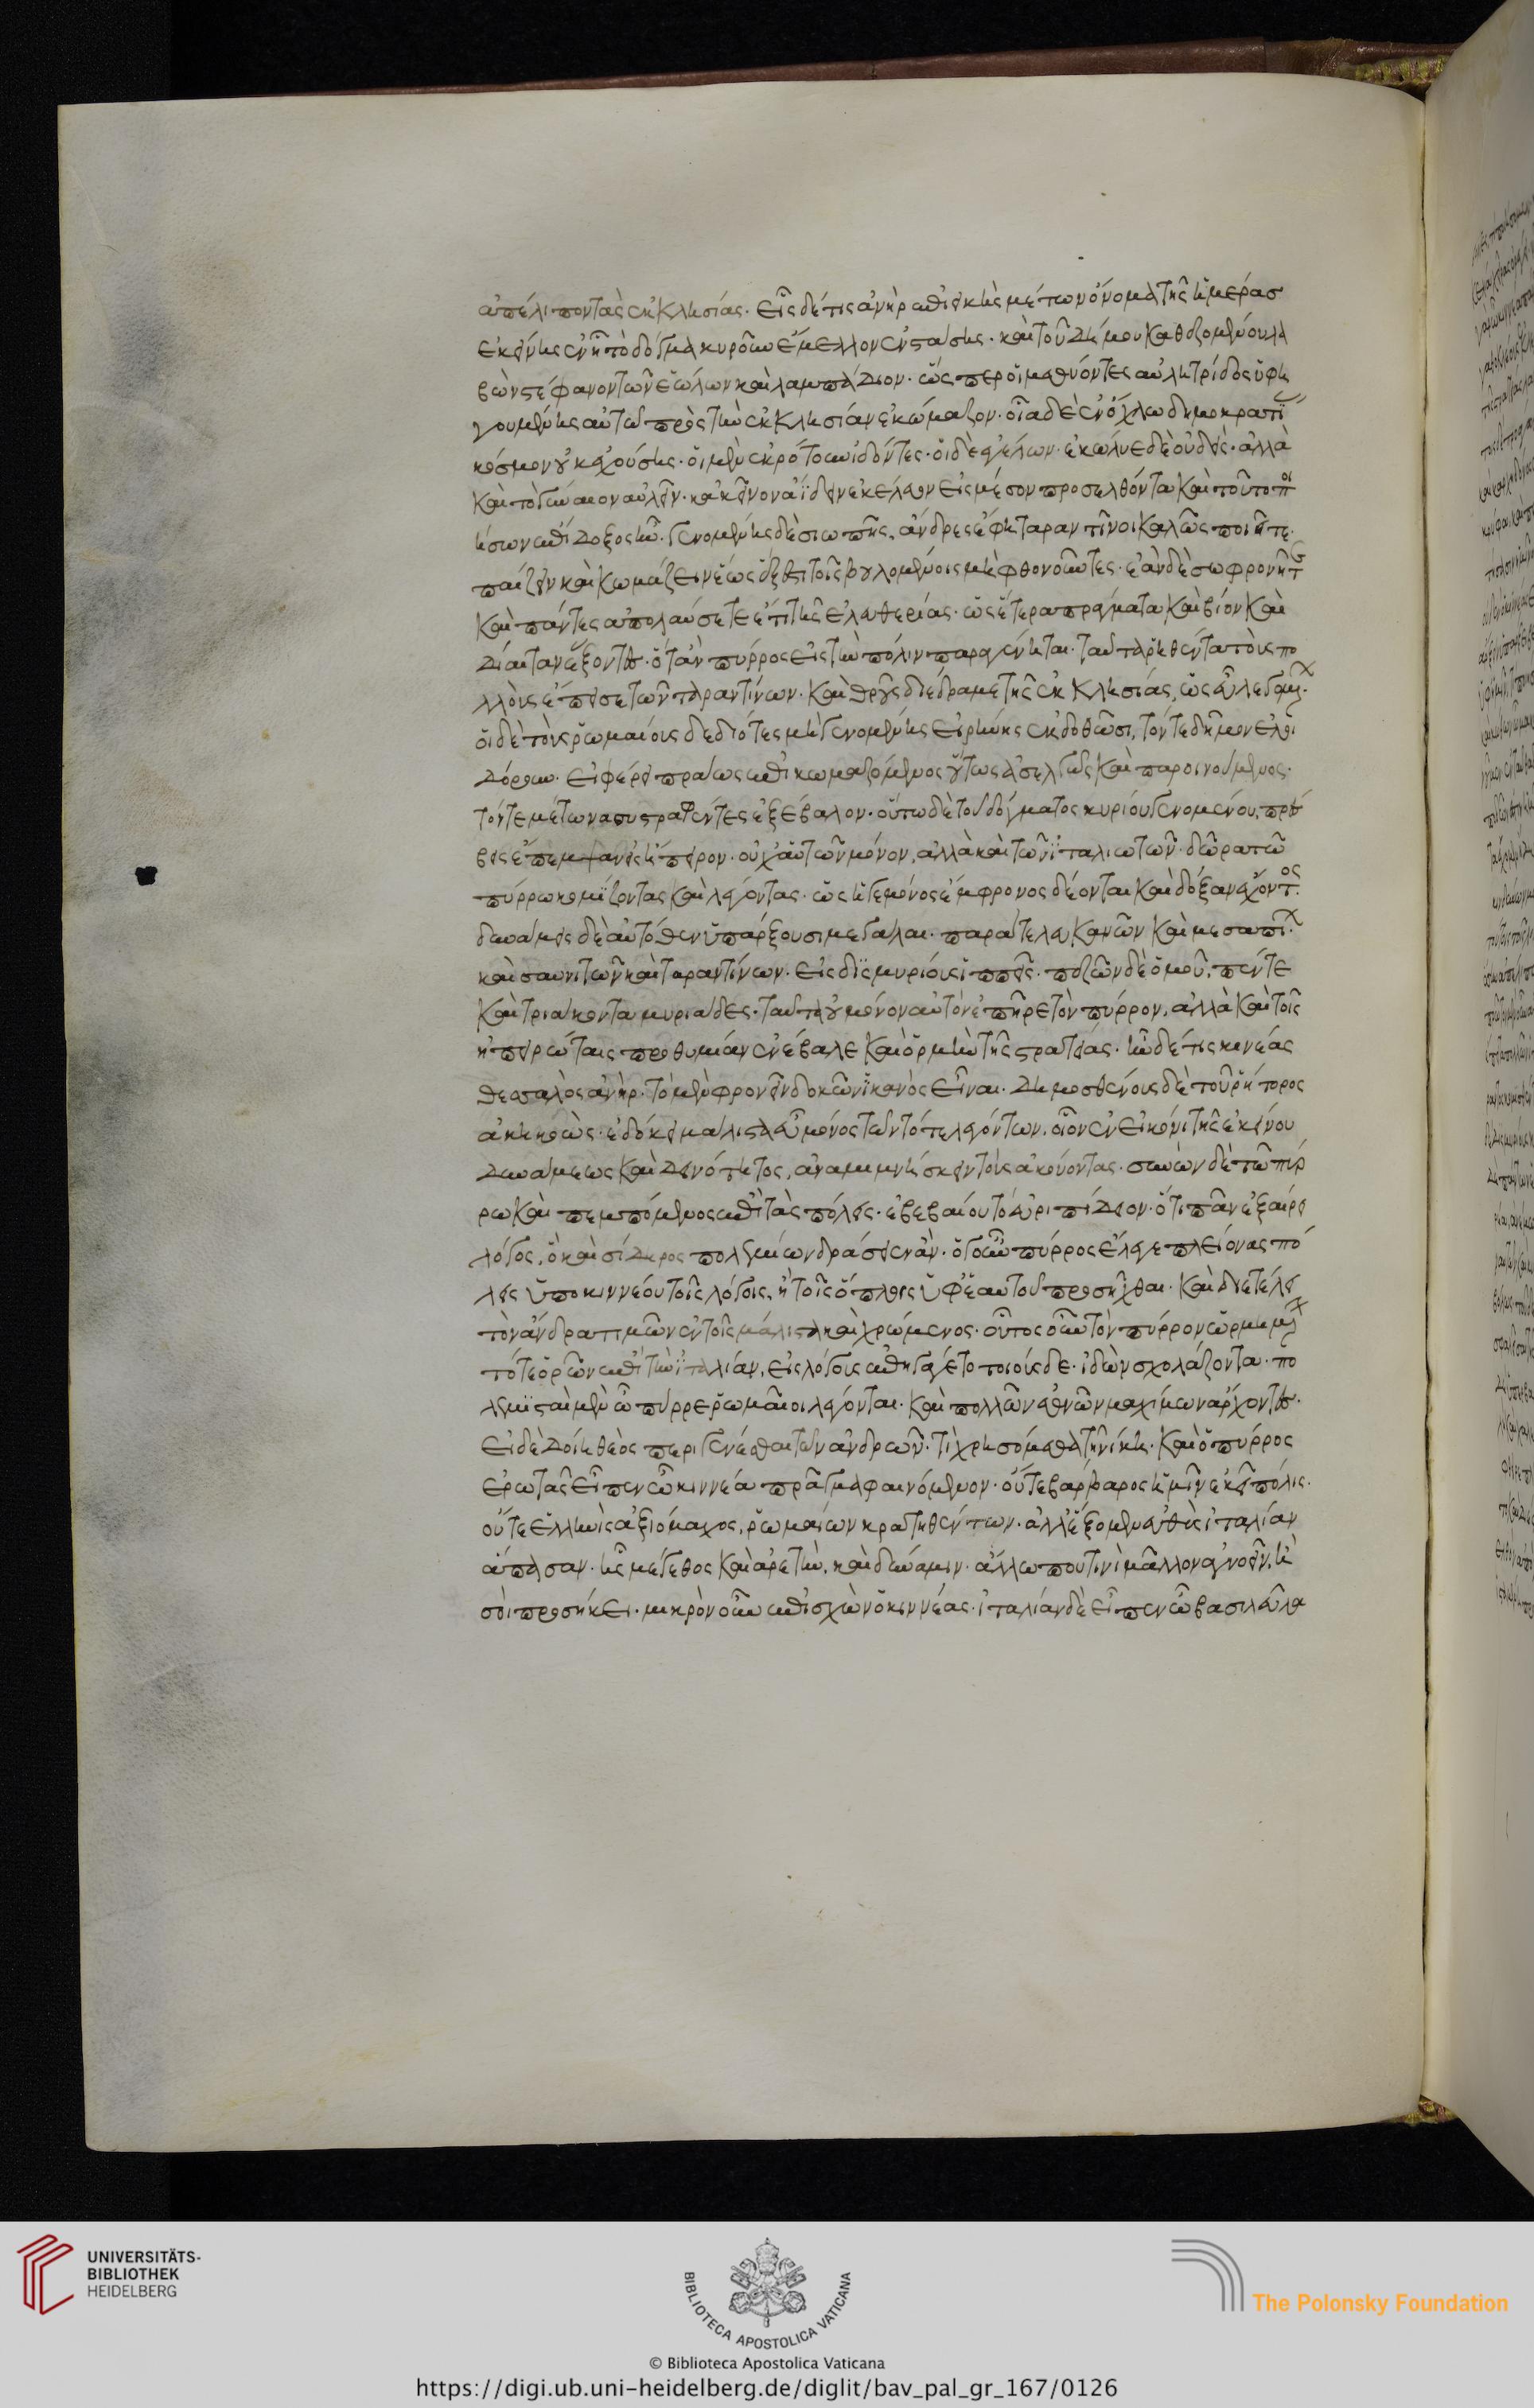 ἀπέλιπον τὰς ἐκκλησίας. εἷς δέ τις ἀνὴρ ἐπιεικὴς μέτων ὄνομα τῆς ἡμέρας
ἐκείνης ἐν ᾗ τὸ δόγμα κυροῦν ἔμελλον ἐνστάσης. καὶ τοῦ δήμου καθεζομένου λα
βὼν στέφανον τῶν ἑώλων καὶ λαμπάδιον. ὥσπερ οἱ μεθύοντες αὐλητρίδος ὑφη
γουμένης αὐτῷ πρὸς τὴν ἐκκλησίαν ἐκώμαζον. οἷα δὲ ἐν ὄχλω δημοκρατί
κόσμον οὐκ ἐχούσης. οἱ μὲν ἐκρότουν ἰδόντες. οἱ δὲ ἐγέλων. ἐκώλυε δὲ οὐδεὶς. ἀλλὰ
καὶ τὸ γύναιον αὐλεῖν. κἀκεῖνον ἄϊδειν ἐκέλευον εἰς μέσον προσελθόντα καὶ τοῦτο π οι
ήσων ἐπίδοξος ἦν. γενομένης δὲ σιωπῆς, ἄνδρες ἔφη ταραντῖνοι καλῶς ποιεῖτε.
παίζειν καὶ κωμάζειν ἕως ἔξεστι τοῖς βουλομένοις μὴ φθονοῦντες. ἐὰν δὲ σωφρονῆτε
καὶ πάντες ἀπολαύσετε ἔτι τῆς ἐλευθερίας. ὡς ἕτερα πράγματα καὶ βίον καὶ
δίαιταν ἕξοντες. ὅταν πύρρος εἰς τὴν πόλιν παραγένηται. ταῦτα ῥηθέντα τοὺς πο
λλοὺς ἔπεισε τῶν ταραντίνων. καὶ θροῦς διέδραμε τῆς ἐκκλησίας, ὡς εὖ λεγομεν.
οἱ δὲ τοὺς ῥωμαίους δεδιότες μὴ γενομένης εἰρήνης ἐκδοθῶσι, τόν τε δῆμον ἐλοι
δόρουν. εἰ φέρει πράως ἐπικωμαζόμενος οὕτως ἀσελγῶς καὶ παροινούμενος.
τόν τε μέτωνα συστραφέντες ἐξέβαλον. οὕτω δὲ τοῦ δόγματος κυρίου γενομένου, πρέ
βεις ἔπεμψαν εἰς ἤπειρον. οὐχ αὑτῶν μόνον, ἀλλὰ καὶ τῶν ἰταλιωτῶν. δῶρα τῶ
πύρρω κομίζοντας καὶ λέγοντας. ὡς ἡγεμόνος ἔμφρονος δέονται καὶ δόξαν ἔχοντος.
δυνάμεις δὲ αὐτόθεν ὑπάρξουσι μεγάλαι. παρά τε λευκανῶν καὶ μεσαπί.
καὶ σαυνιτῶν καὶ ταραντίνων. εἰς δισμυρίους ἱππεῖς. πεζῶν δὲ ὁμοῦ, πέντε
καὶ τριάκοντα μυριάδες. ταῦτα οὐ μόνον αὐτὸν ἐπῆρε τὸν πύρρον, ἀλλὰ καὶ τοῖς
ἠπειρώταις προθυμίαν ἐνέβαλε καὶ ὁρμὴν τῆς στρατείας. ἦν δέ τις κινέας
θεσσαλὸς ἀνὴρ. τὸ μὲν φρονεῖν δοκῶν ἱκανὸς εἶναι. δημοσθένους δὲ τοῦ ῥήτορος
ἀκηκοὼς. ἐδόκει μάλιστα εὖ μόνος τῶν τότε λεγόντων. οἷον ἐν εἰκόνι τῆς ἐκείνου
δυνάμεως καὶ δεινότητος, ἀναμιμνήσκειν τοὺς ἀκούοντας. συνὼν δὲ τῶ πύρ
ρω καὶ πεμπόμενος ἐπὶ τὰς πόλεις. ἐβεβαίου τὸ εὐριπίδειον. ὅτι πᾶν ἐξαίρει
λόγος, ὃ καὶ σίδηρος πολεμίων δράσειεν ἂν. ὁ γοῦν πύρρος ἔλεγε πλείονας πό
λεις ὑπὸ κιννέου τοῖς λόγοις, ἢ τοῖς ὅπλοις ὑφ' ἑαυτοῦ προσῆχθαι. καὶ διετέλει
τὸν ἄνδρα τιμῶν ἐν τοῖς μάλιστα καὶ χρώμενος. οὗτος οὖν τὸν πύρρον ὡρμημέ
τότε ὁρῶν ἐπὶ τὴν ἰταλίαν, εἰς λόγους ἐπηγάγετο τοιούσδε. ἰδὼν σχολάζοντα. πο
λεμϊσταὶ μὲν ὦ πύρρε ῥωμαῖοι λέγονται. καὶ πολλῶν ἐθνῶν μαχίμων ἄρχοντες.
εἰ δὲ δοίη θεὸς περιγενέσθαι τῶν ἀνδρῶν. τί χρησόμεθα τῆ νίκη. καὶ ὁ πύρρος
ἐρωτᾶς εἶπεν ὦ κιννέα πρᾶγμα φαινόμενον. οὔτε βάρβαρος ἡμῖν ἐκεῖ πόλις.
οὔτε ἑλληνὶς ἀξιόμαχος, ῥωμαίων κρατηθέντων. ἀλλ' ἕξομεν εὐθὺς ἰταλίαν
ἅπασαν. ἧς μέγεθος καὶ ἀρετὴν, καὶ δύναμιν. ἄλλω που τινὶ μᾶλλον ἀγνοεῖν, ἢ
σοὶ προσήκει. μικρὸν οὖν ἐπισχὼν ὁ κιννέας. ἰταλίαν δὲ εἶπεν ὦ βασιλεῦ λα
UNIVERSITÄTS-
BIBLIOTHEK
HEIDELBERG
BIBLIOTECA APOSTOLICA VATICANA
The Polonsky Foundation
© Biblioteca Apostolica Vaticana
https://digi.ub.uni-heidelberg.de/diglit/bav_pal_gr_167/0126